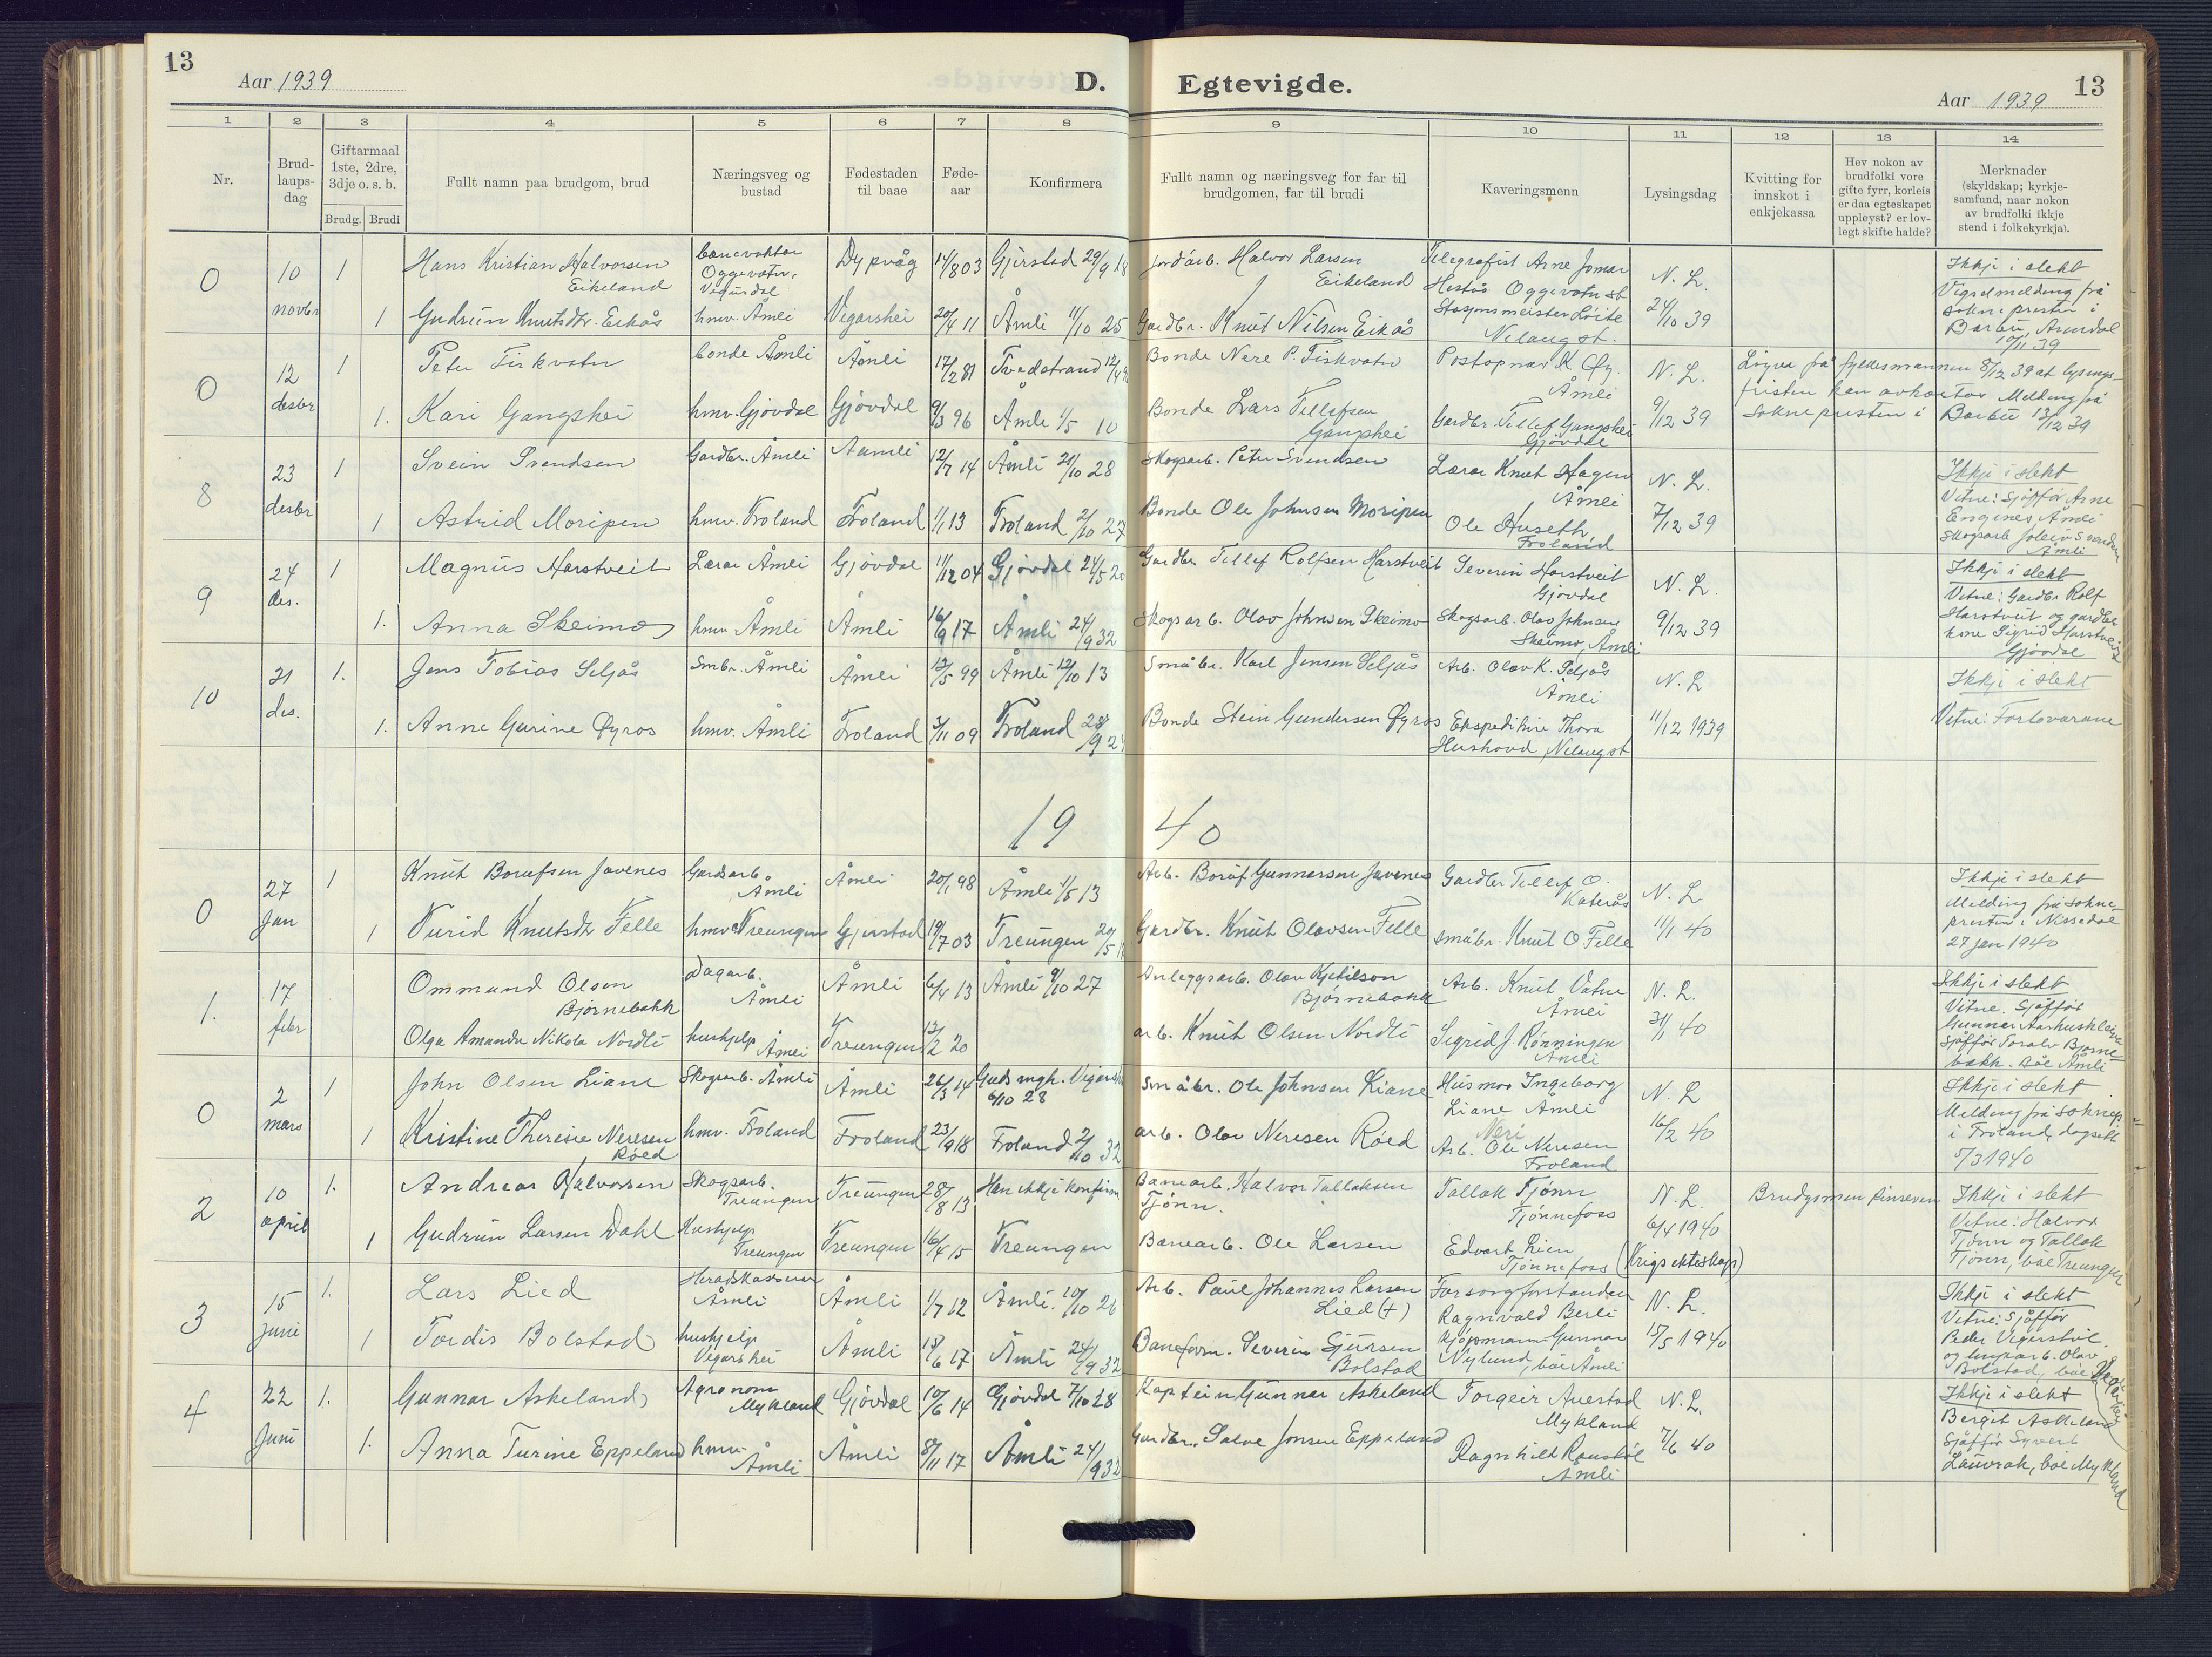 13
Aar 1939
D.
Egtevigde.
Aar 1939
13
1 2 3 4 5 6 7 8 9 10 11 12 13 14
Nr.
Brud-
laups-
dag
Giftarmaal
1ste, 2dre,
3dje o. s. b.
Brudg. Brudi
Fullt namn paa brudgom, brud
Næringsveg og
bustad
Fødestaden
til baae
Føde-
aar
Konfirmera
Fullt namn og næringsveg for far til
brudgomen, far til brudi
Kaveringsmenn
Lysingsdag
Kvitting for
innskot i
enkjekassa
Hev nokon av
brudfolki vore
gifte fyrr, korleis
er daa egteskapet
uppløyst? er lov-
legt skifte halde?
Merknader
(skyldskap; kyrkje-
samfund, naar nokon
av brudfolki ikkje
stend i folkekyrkja).
0
10
novbr
1
Hans Kristian Halvorsen
Eikeland
banevaktar
Oggevatn,
Vegusdal
Dypvåg
14/8 03
Gjerstad 29/9 18
Jordarb. Halvor Larsen
Eikeland
Telegrafist Arne Jomar
Hestås Oggevatn st
N. L.
24/10 39
Ikkje i slekt
Vigselmelding frå
soknepresten i
Barbu, Arendal
10/11 39
1
Gudrun Knutsdtr. Eikås
hmv. Åmli
Vegarshei
20/4 11
Åmli 11/10 25
Gardbr. Knut Nilsen Eikås
Stasjonsmeister Løite
Nelaug st.
0
12
desbr
1
Peter Fiskvatn
bonde Åmli
Åmli
17/2 81
Tvedestrand
Bonde Nere P. Fiskvatn
Postopnar K. Øy.
Åmli
N. L.
9/12 39
Løyve frå fylkesmannen 8/12 39 at lysings-
fristen kan avkortas Melding frå
soknepresten i Barbu 13/12 39
1.
Kari Gangshei
hmv. Gjøvdal
Gjøvdal
9/3 96
Åmli 1/5 10
Bonde Lars Tellefsen
Gangshei
Gardbr. Tellef Gangshei
Gjøvdal
8
23
desbr
1
Svein Svendsen
Gardbr. Åmli
Aamli
12/7 14
Åmli 21/10 28
Skogsarb. Peter Svendsen
Lærar Knut Hagen
Åmli
N. L.
7/12 39
Ikkje i slekt
Vitne: Sjåffør Arne
Engenes Åmli
Skogsarb Svendsen
Åmli
1
Astrid Moripen
hmv. Froland
Froland
1/1 13
Froland 2/10 27
Bonde Ole Johnsen Moripen
Ole Huseth
Froland
9
24
des.
1
Magnus Harstveit
Lærar Åmli
Gjøvdal
11/12 04
Gjøvdal 24/5 20
Gardbr. Tellef Rolfsen Harstveit
Severin Harstveit
Gjøvdal
N. L.
9/12 39
Ikkje i slekt
Vitne: Gardbr Rolf
Harstveit og gardbr
kone Sigrid Harstveit
Gjøvdal
1.
Anna Skeimo
hmv Åmli
Åmli
16/9 17
Åmli 24/9 32
Skogsarb. Olav Johnsen Skeimo
Skogsarb. Olav Johnsen
Skeimo, Åmli
10
31
des.
1.
Jens Tobias Seljås
Smbr. Åmli
Åmli
12/5 99
Åmli 12/10 13
Småbr. Karl Jensen Seljås
Arb. Olav K. Seljås
Åmli
N. L
11/12 1939
Ikkje i slekt
Vitne: Forlovarane
1.
Anne Gurine Øyros
hmv. Åmli
Froland
3/11 09
Froland 28/9 2
Bonde Stein Gundersen Øyros
Ekspeditrise Thora
Hushovd, Nelaug st
19 40
0
27
Jan
1
Knut Borufsen Javenes
Gardsarb
Åmli
Åmli
20/1 98
Åmli 1/5 13
Arb. Boruf Gunnarsen Javenes
Gardbr Tellef O.
Katerås
N. L
11/1 40
Ikkje i slekt
Melding frå sokne-
presten i Nissedal
27 jan 1940
1
Turid Knutsdtr Felle
hmv Treungen
Gjerstad
19/7 03
Treungen 29/5
Gardbr. Knut Olavsen Felle
småbr. Knut O Felle
1.
17
febr
Ommund Olsen
Bjørnebakk
Dagarb.
Åmli
Åmli
6/4 13
Åmli 9/10 27
Anleggsarb. Olav Kjetilson
Bjørnebakk
Arb. Knut Vatne
Åmli
N. L.
31/1 40
Ikkje i slekt
Vitne. Sjåffør
Gunnar
sjåffør Toralv Bjørne-
bakk. båe Åmli
Olga Amanda Nikola Nordli
hushjelp
Åmli
Treungen
12/2 20
arb. Knut Olsen Nordli
Sigrid J. Rønningen
Åmli
0
2
mars
1
John Olsen Liane
Skogsarb. Åmli
Åmli
26/3 14
Guds mgh. Vegarshei
6/10 28
Småbr. Ole Johnsen Liane
Husmor Ingeborg
Liane Åmli
N. L
16/2 40
Ikkje i slekt
Melding frå soknepr
i Froland, dagsett
5/3 1940
1
Kristine Therese Neresen
Røed
hmv. Froland
Froland
23/9 18
Froland 2/10 32
arb. Olav Neresen Røed
Neri
Arb. Ole Neresen
Froland
2
10
april
1.
Andreas Halvorsen
Skogsarb.
Treungen
Treungen
28/8 13
Han ikkje konfirm
Banearb. Halvor Tallaksen
Tjønn.
Tallak Tjønn
Tjønnefoss
N. L.
6/4 1940
(Krigsekteskap)
Brudgomen pinseven
Ikkje i slekt
Vitne: Halvor
Tjønn og Tallak
Tjønn, båe Treungen
1
Gudrun Larsen Dahl
Hushjelp
Treungen
Treungen
16/4 15
Treungen
Banearb. Ole Larsen
Edvart Lien
Tjønnefoss
3
15
juni
1.
Lars Lied
Heradskasserar
Åmli
Åmli
1/7 12
Åmli. 10/10 26
Arb. Paul Johannes Larsen
Lied (+)
Forsorgforstandar
Ragnvald Berli
N. L.
15/5 1940
Ikkje i slekt
Vitne: Sjåffør
Peder Vegerstøl
og Olav
Bolstad, båe Vegarshei
1
Tordis Bolstad
hushjelp
Vegarshei
Åmli
15/6 17
Åmli 24/9 32
Baneform. Severin Sjursen
Bolstad
Kjøpmann Gunnar
Nylund, båe Åmli
4
22
Juni
1.
Gunnar Askeland
Agronom
Mykland
Gjøvdal
10/6 14
Gjøvdal 7/10 28
Kaptein Gunnar Askeland
Torgeir Auestad
Mykland
N. L.
7/6 40
Ikkje i slekt
Bergit Askeland
Sjåffør Syvert
Lauvrak, båe Mykland
1.
Anna Turine Eppeland
hmv
Åmli
Åmli
8/11 17
Åmli 24/9 32
Gardbr. Salve Jonsen Eppeland
Ragnhild Raustøl
Åmli